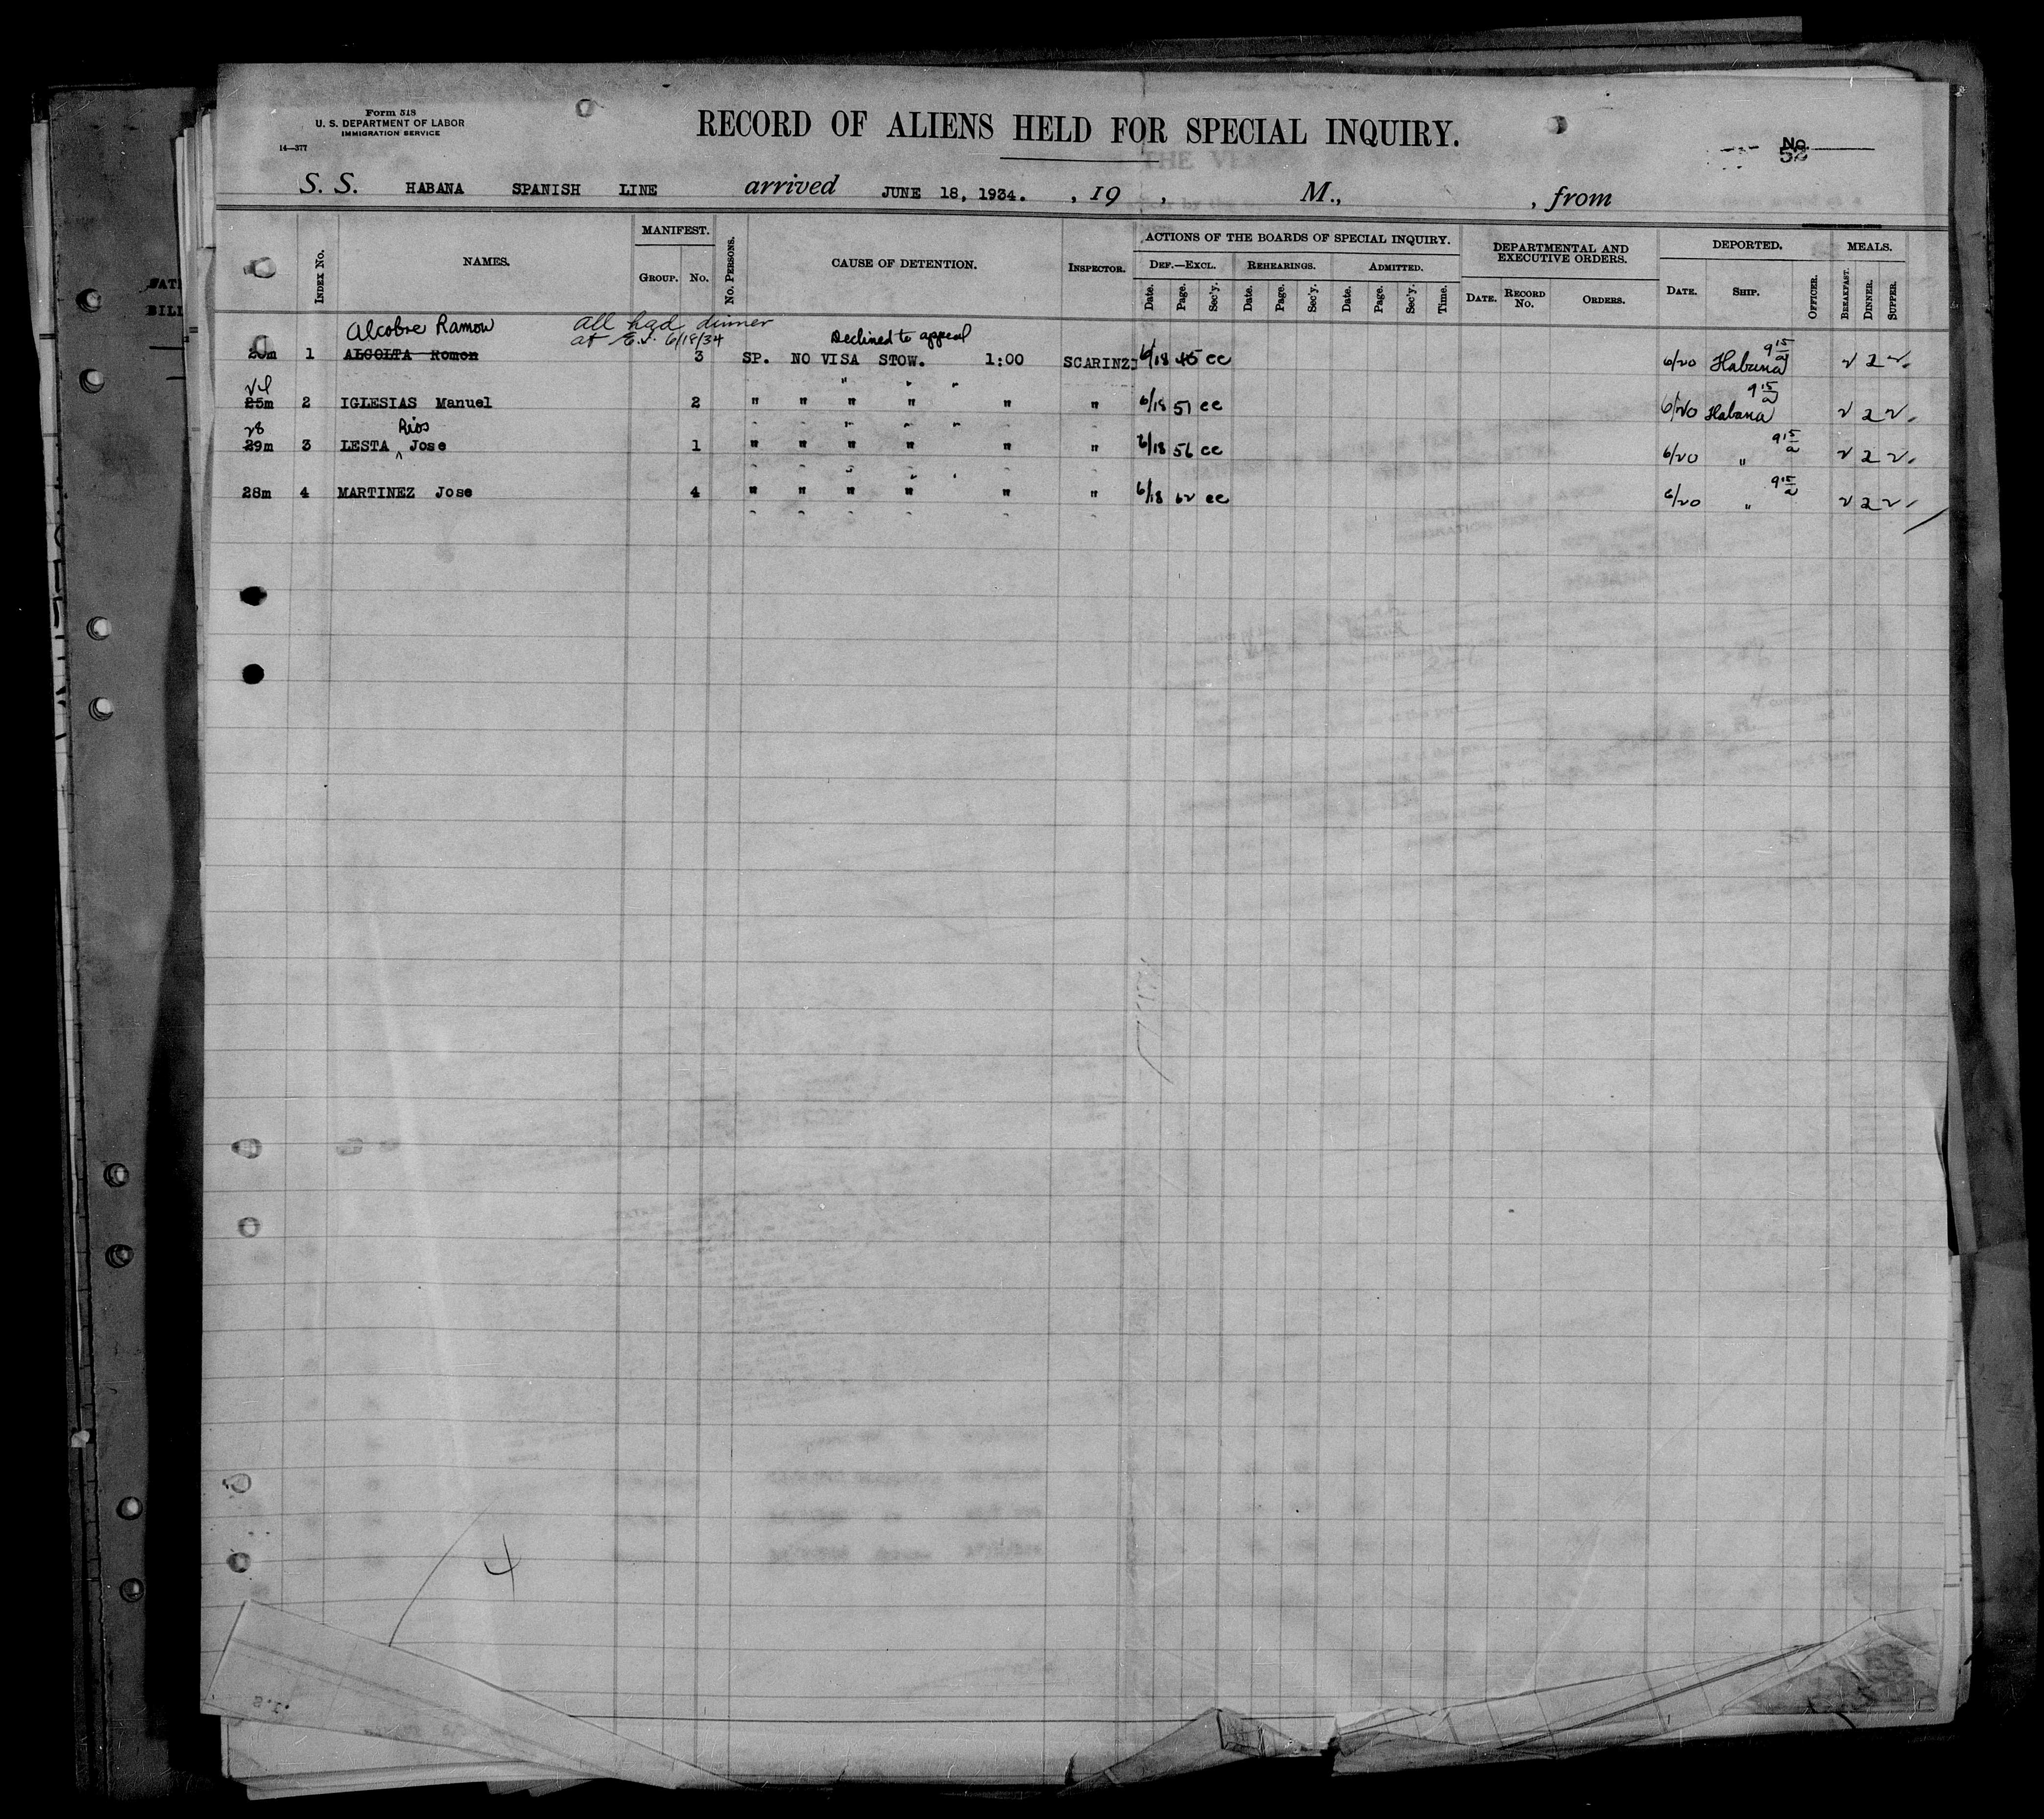 Form 518
U. S. DEPARTMENT OF LABOR
IMMIGRATION SERVICE
14—377
RECORD OF ALIENS HELD FOR SPECIAL INQUIRY.
No.
52
S. S. HABANA SPANISH LINE arrived JUNE 18, 1934. , 19 , M., , from
INDEX No.
NAMES.
MANIFEST.
GROUP. No.
No. PERSONS.
CAUSE OF DETENTION.
INSPECTOR.
ACTIONS OF THE BOARDS OF SPECIAL INQUIRY.
DEF.—EXCL. REHEARINGS. ADMITTED.
Date. Page. Sec'y. Date. Page. Sec'y. Date. Page. Sec'y. Time.
DEPARTMENTAL AND
EXECUTIVE ORDERS.
DATE. RECORD No. ORDERS.
DEPORTED.
DATE. SHIP. OFFICER.
MEALS.
BREAKFAST. DINNER. SUPPER.
Alcobre Ramon All had dinner
at E.I. 6/18/34 Declined to appeal
1 ALCOLTA Romon 3 SP. NO VISA STOW. 1:00 SCARINZI 6/18 45 cc 6/20 Habana 9 15/a 2 2 2
25m 2 IGLESIAS Manuel 2 " " " " " " 6/18 51 cc 6/20 Habana 9 15/a 2 2 2
28 Rios
29m 3 LESTA ^ Jose 1 " " " " " " 6/18 56 cc 6/20 " 9 15/a 2 2 2
28m 4 MARTINEZ Jose 4 " " " " " " 6/18 62 cc 6/20 " 9 15/a 2 2 2
4
S.I.